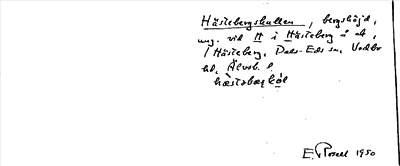 Hästebergskullen, bergshöjd,
ung. vid H i Hästeberg å ek,
/ Hästeberg, Dals-Eds sn, Vedbo
hd, Älvsb. l.
hæstəbærköl
E. Rosell 1950